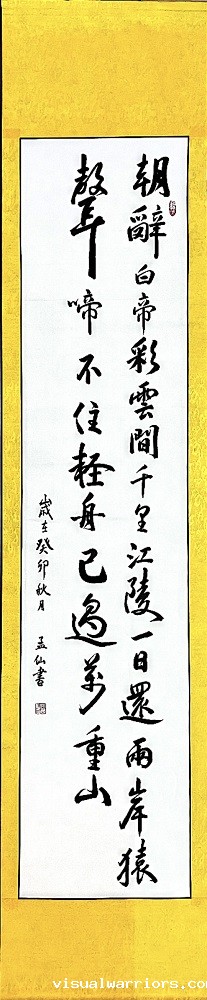 朝辭白帝彩雲間千里江陵一日還兩岸猿
聲啼不住輕舟已過萬重山
歲在癸卯秋月 孟仙書
visualwarriors.com